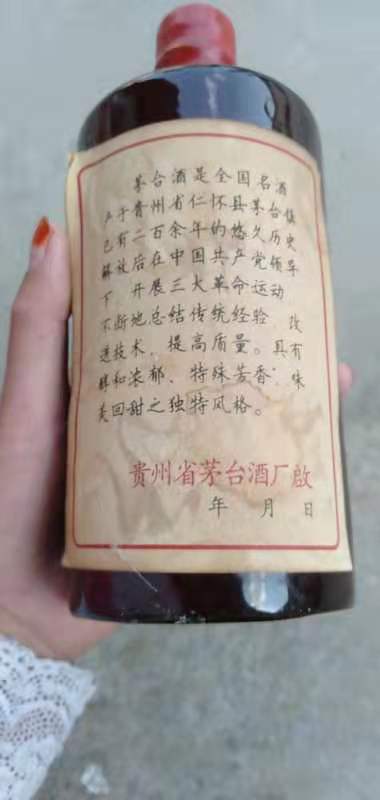 茅台酒是全国名酒
产于贵州省仁怀县茅台镇
已有二百余年的悠久历史
解放后在中国共产党领导
下 开展三大革命运动
不断地总结传统经验 改
进技术、提高质量。具有
醇和浓郁、特殊芳香、味
美回甜之独特风格。
贵州省茅台酒厂啟
年 月 日